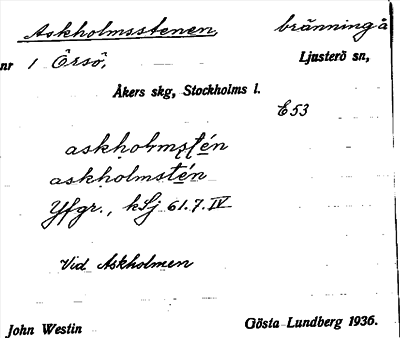 Askholmsstenen, bränning å
nr 1 Örsö, Ljusterö sn,
Åkers skg, Stockholms l.
E 53
askholmstén
askholmstén
Yfgr., kSj 61.7. IV
Vid Askholmen
John Westin Gösta Lundberg 1936.